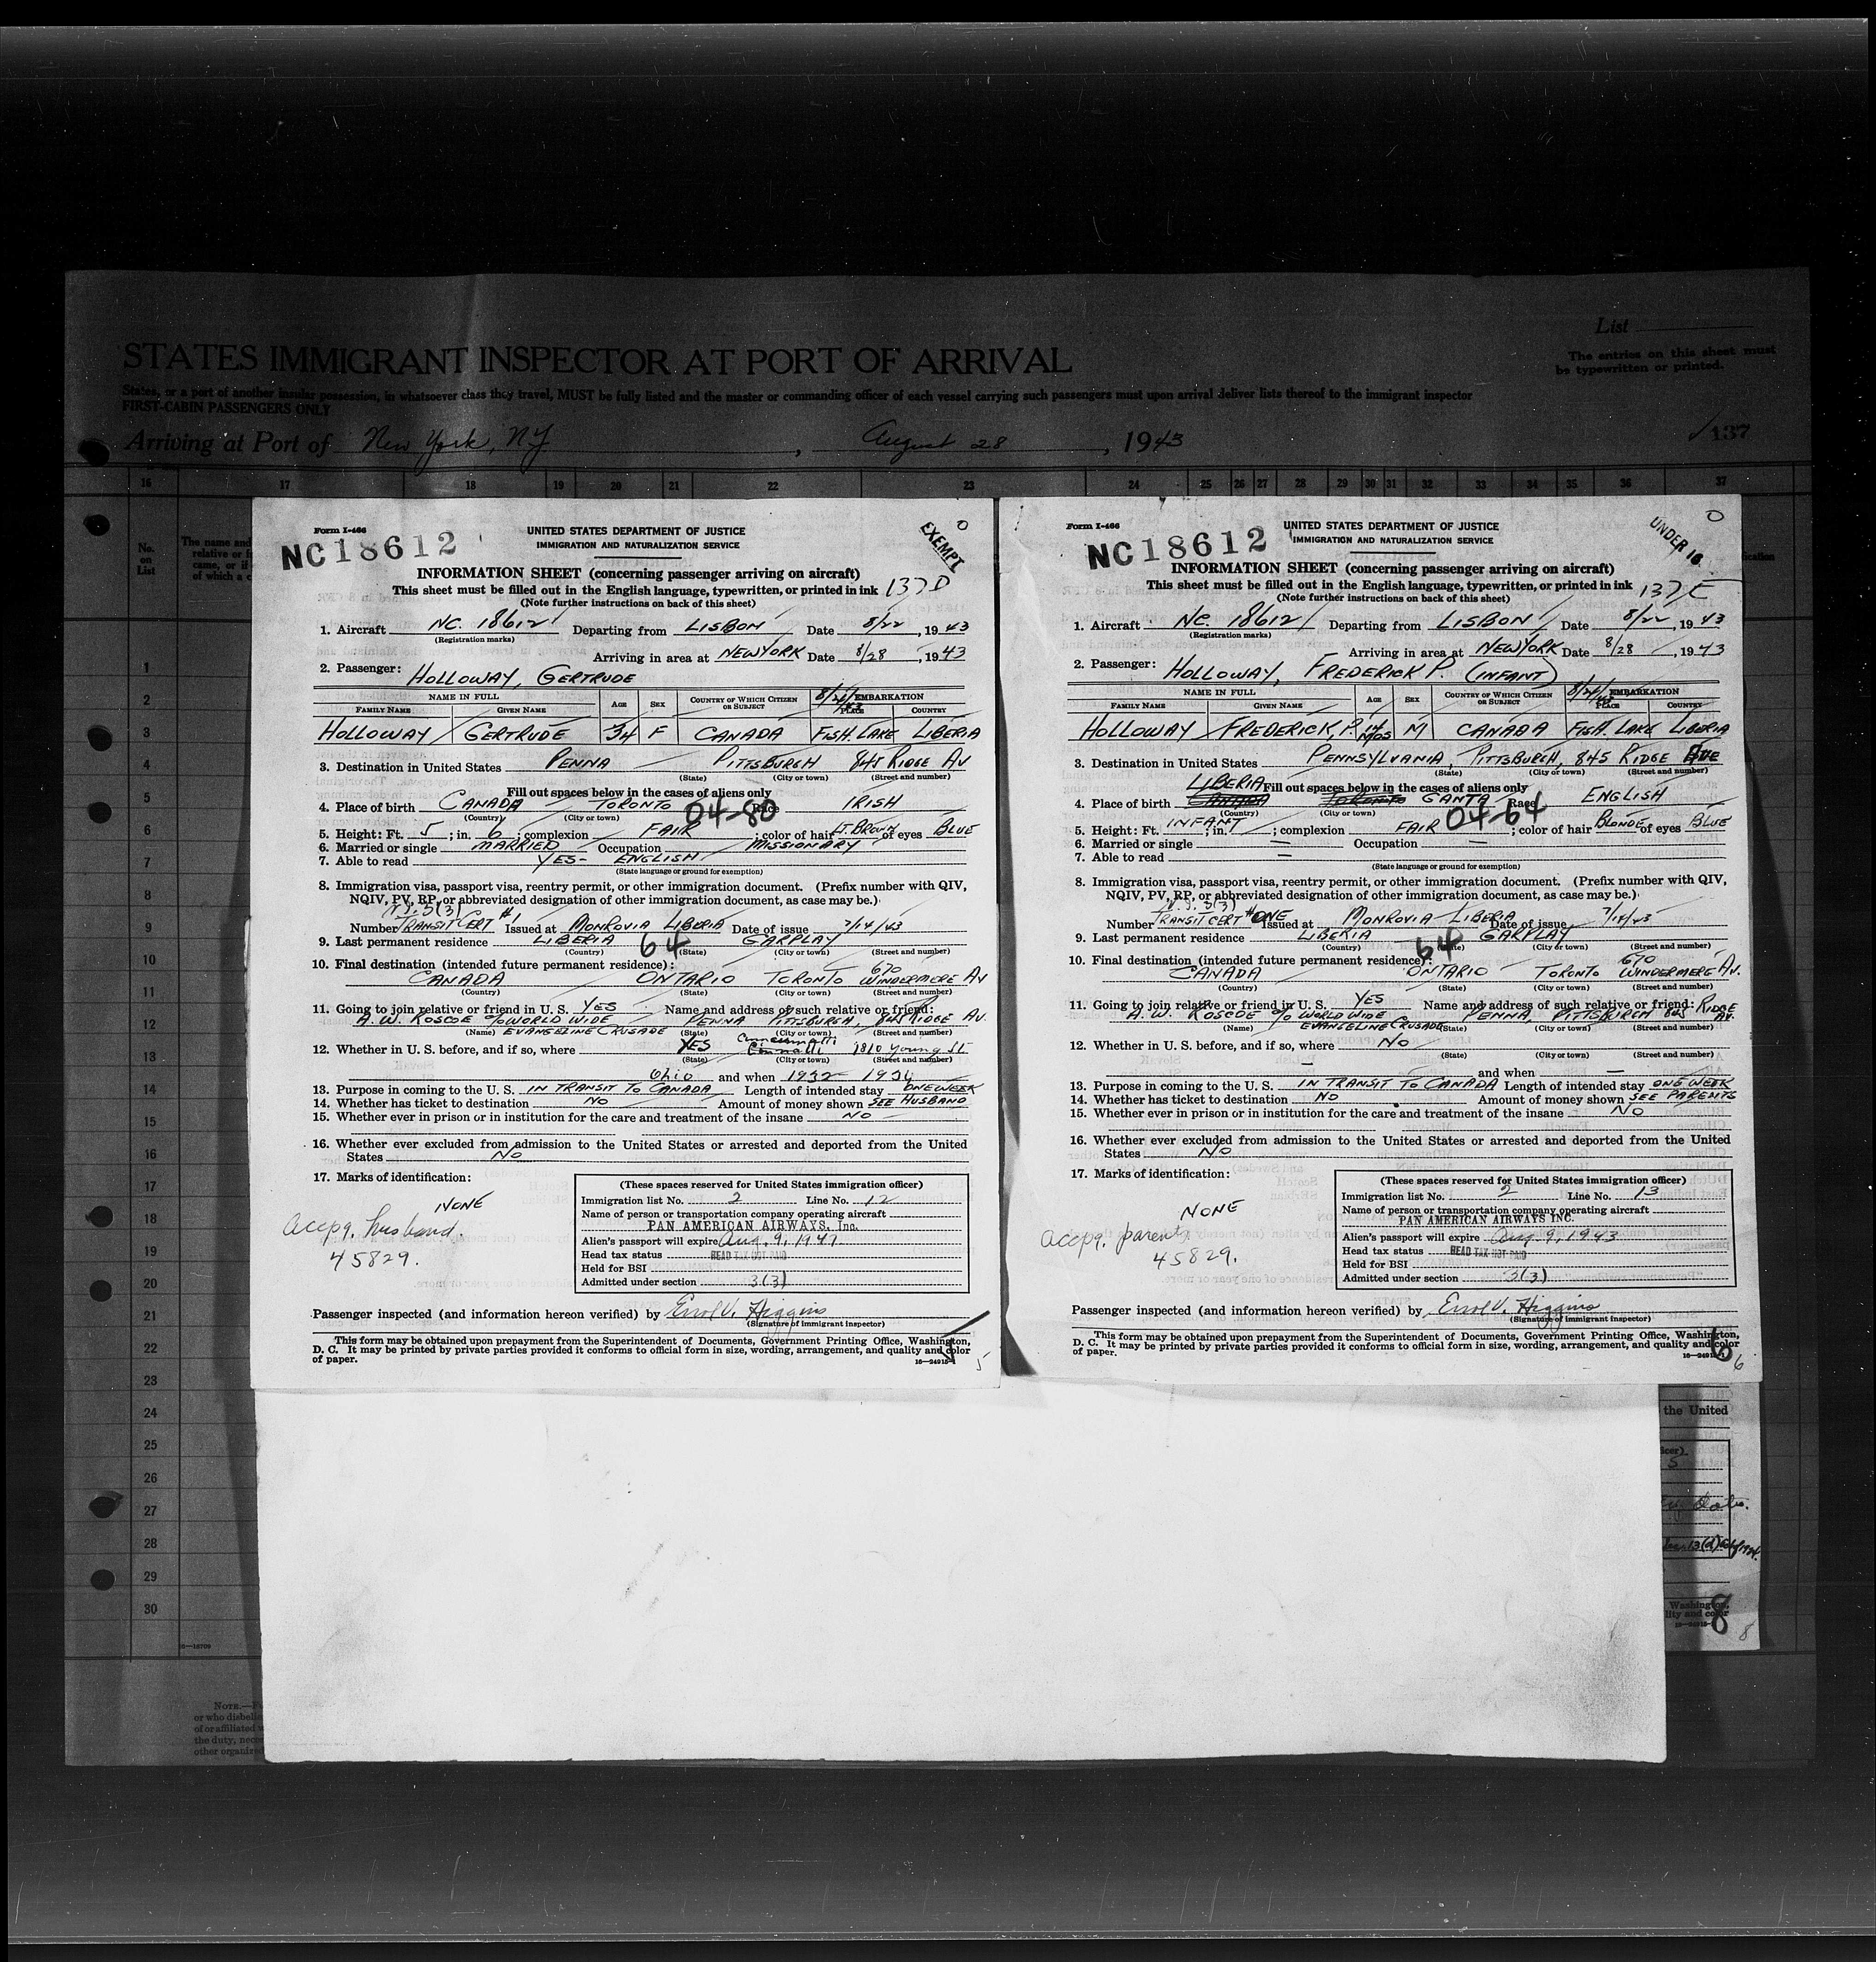 List
STATES IMMIGRANT INSPECTOR AT PORT OF ARRIVAL
The entries on this sheet must
be typewritten or printed.
States, or a part of another insular possession, in whatsoever class they travel, MUST be fully listed and the master or commanding officer of each vessel carrying such passengers must upon arrival deliver lists thereof to the immigrant inspector
FIRST-CABIN PASSENGERS ONLY
Arriving at Port of New York, NY, August 28, 1943
137
16 17 18 19 20 21 22 23 24 25 26 27 28 29 30 31 32 33 34 35 36 37
No. on List
The name and
relative or f
came, or if
of which a c
1
2
3
4
5
6
7
8
9
10
11
12
13
14
15
16
17
18
19
20
21
22
23
24
25
26
27
28
29
30
16—16709
NOTE.—F
or who disbelie
of or affiliated w
the duty, nece
other organiz
Form I-466
NC18612
UNITED STATES DEPARTMENT OF JUSTICE
IMMIGRATION AND NATURALIZATION SERVICE
EXEMPT
INFORMATION SHEET (concerning passenger arriving on aircraft)
This sheet must be filled out in the English language, typewritten, or printed in ink 137D
(Note further instructions on back of this sheet)
1. Aircraft NC. 18612 Departing from LISBON Date 8/22, 1943
(Registration marks)
Arriving in area at NEW YORK Date 8/28, 1943
2. Passenger: HOLLOWAY, GERTRUDE
NAME IN FULL AGE SEX COUNTRY OF WHICH CITIZEN OR SUBJECT EMBARKATION
FAMILY NAME GIVEN NAME PLACE COUNTRY
HOLLOWAY GERTRUDE 34 F CANADA FISH. LAKE LIBERIA
3. Destination in United States PENNA PITTSBURGH 845 RIDGE AV
(State) (City or town) (Street and number)
Fill out spaces below in the cases of aliens only
4. Place of birth CANADA TORONTO 04-80 Race IRISH
(Country) (City or town)
5. Height: Ft. 5; in. 6; complexion FAIR; color of hair LT. BROWN of eyes BLUE
6. Married or single MARRIED Occupation MISSIONARY
7. Able to read YES- ENGLISH
(State language or ground for exemption)
8. Immigration visa, passport visa, reentry permit, or other immigration document. (Prefix number with QIV,
NQIV, PV, RP, or abbreviated designation of other immigration document, as case may be.)
3(3)
Number TRANSIT CERT #1 Issued at MONROVIA LIBERIA Date of issue 7/14/43
9. Last permanent residence LIBERIA 64 GARPLAY
(Country) (State) (City or town) (Street and number)
10. Final destination (intended future permanent residence): 670
CANADA ONTARIO TORONTO WINDERMERE AV
(Country) (State) (City or town) (Street and number)
11. Going to join relative or friend in U. S. YES Name and address of such relative or friend:
A. W. ROSCOE % WORLD WIDE PENNA PITTSBURGH, 845 RIDGE AV.
(Name) EVANGELINE CRUSADE (State) (City or town) (Street and number)
Cincinnatti
12. Whether in U. S. before, and if so, where YES 1810 Young St.
(State) (City or town) (Street and number)
Ohio and when 1932-
13. Purpose in coming to the U. S. IN TRANSIT TO CANADA Length of intended stay ONE WEEK
14. Whether has ticket to destination NO Amount of money shown SEE HUSBAND
15. Whether ever in prison or in institution for the care and treatment of the insane NO
16. Whether ever excluded from admission to the United States or arrested and deported from the United
States NO
17. Marks of identification:
NONE
accpg. husband.
45829.
(These spaces reserved for United States immigration officer)
Immigration list No. 2 Line No. 12
Name of person or transportation company operating aircraft
PAN AMERICAN AIRWAYS, Inc.
Alien's passport will expire Aug. 9, 1947
Head tax status HEAD TAX NOT PAID
Held for BSI
Admitted under section 3(3)
Passenger inspected (and information hereon verified) by Errol V. Higgins
(Signature of immigrant inspector)
This form may be obtained upon prepayment from the Superintendent of Documents, Government Printing Office, Washington,
D. C. It may be printed by private parties provided it conforms to official form in size, wording, arrangement, and quality and color
of paper.
5
Form I-466
NC18612
UNITED STATES DEPARTMENT OF JUSTICE
IMMIGRATION AND NATURALIZATION SERVICE
UNDER 16
INFORMATION SHEET (concerning passenger arriving on aircraft)
This sheet must be filled out in the English language, typewritten, or printed in ink 137E
(Note further instructions on back of this sheet)
1. Aircraft NC. 18612 Departing from LISBON Date 8/22, 1943
(Registration marks)
Arriving in area at NEW YORK Date 8/28, 1943
2. Passenger: HOLLOWAY, FREDERICK P. (INFANT)
NAME IN FULL AGE SEX COUNTRY OF WHICH CITIZEN OR SUBJECT EMBARKATION
FAMILY NAME GIVEN NAME PLACE COUNTRY
HOLLOWAY FREDERICK, P. 14 MOS M CANADA FISH. LAKE LIBERIA
3. Destination in United States PENNSYLVANIA, PITTSBURGH, 845 RIDGE AVE
(State) (City or town) (Street and number)
LIBERIA Fill out spaces below in the cases of aliens only
4. Place of birth CANADA TORONTO GANTA Race ENGLISH
(Country) (City or town) 04-64
5. Height: Ft. INFANT; in.; complexion FAIR; color of hair BLONDE of eyes BLUE
6. Married or single — Occupation —
7. Able to read —
(State language or ground for exemption)
8. Immigration visa, passport visa, reentry permit, or other immigration document. (Prefix number with QIV,
NQIV, PV, RP, or abbreviated designation of other immigration document, as case may be.)
3(3)
Number TRANSIT CERT #ONE Issued at MONROVIA LIBERIA Date of issue 7/14/43
9. Last permanent residence LIBERIA 64 GARPLAY
(Country) (State) (City or town) (Street and number)
10. Final destination (intended future permanent residence): 670
CANADA ONTARIO TORONTO WINDERMERE AV.
(Country) (State) (City or town) (Street and number)
11. Going to join relative or friend in U. S. YES Name and address of such relative or friend:
A. W. ROSCOE % WORLD WIDE PENNA, PITTSBURGH 845 RIDGE AV.
(Name) EVANGELINE CRUSADE (State) (City or town) (Street and number)
12. Whether in U. S. before, and if so, where NO
(State) (City or town) (Street and number)
— and when —
13. Purpose in coming to the U. S. IN TRANSIT TO CANADA Length of intended stay ONE WEEK
14. Whether has ticket to destination NO Amount of money shown SEE PARENTS
15. Whether ever in prison or in institution for the care and treatment of the insane NO
16. Whether ever excluded from admission to the United States or arrested and deported from the United
States NO
17. Marks of identification:
NONE
accpg. parents
45829.
(These spaces reserved for United States immigration officer)
Immigration list No. 2 Line No. 13
Name of person or transportation company operating aircraft
PAN AMERICAN AIRWAYS INC.
Alien's passport will expire Aug 9, 1943
Head tax status HEAD TAX NOT PAID
Held for BSI
Admitted under section 3(3)
Passenger inspected (and information hereon verified) by Errol V. Higgins
(Signature of immigrant inspector)
This form may be obtained upon prepayment from the Superintendent of Documents, Government Printing Office, Washington,
D. C. It may be printed by private parties provided it conforms to official form in size, wording, arrangement, and quality and color
of paper.
6
6
the United
5
Washington,
lity and color
8
8